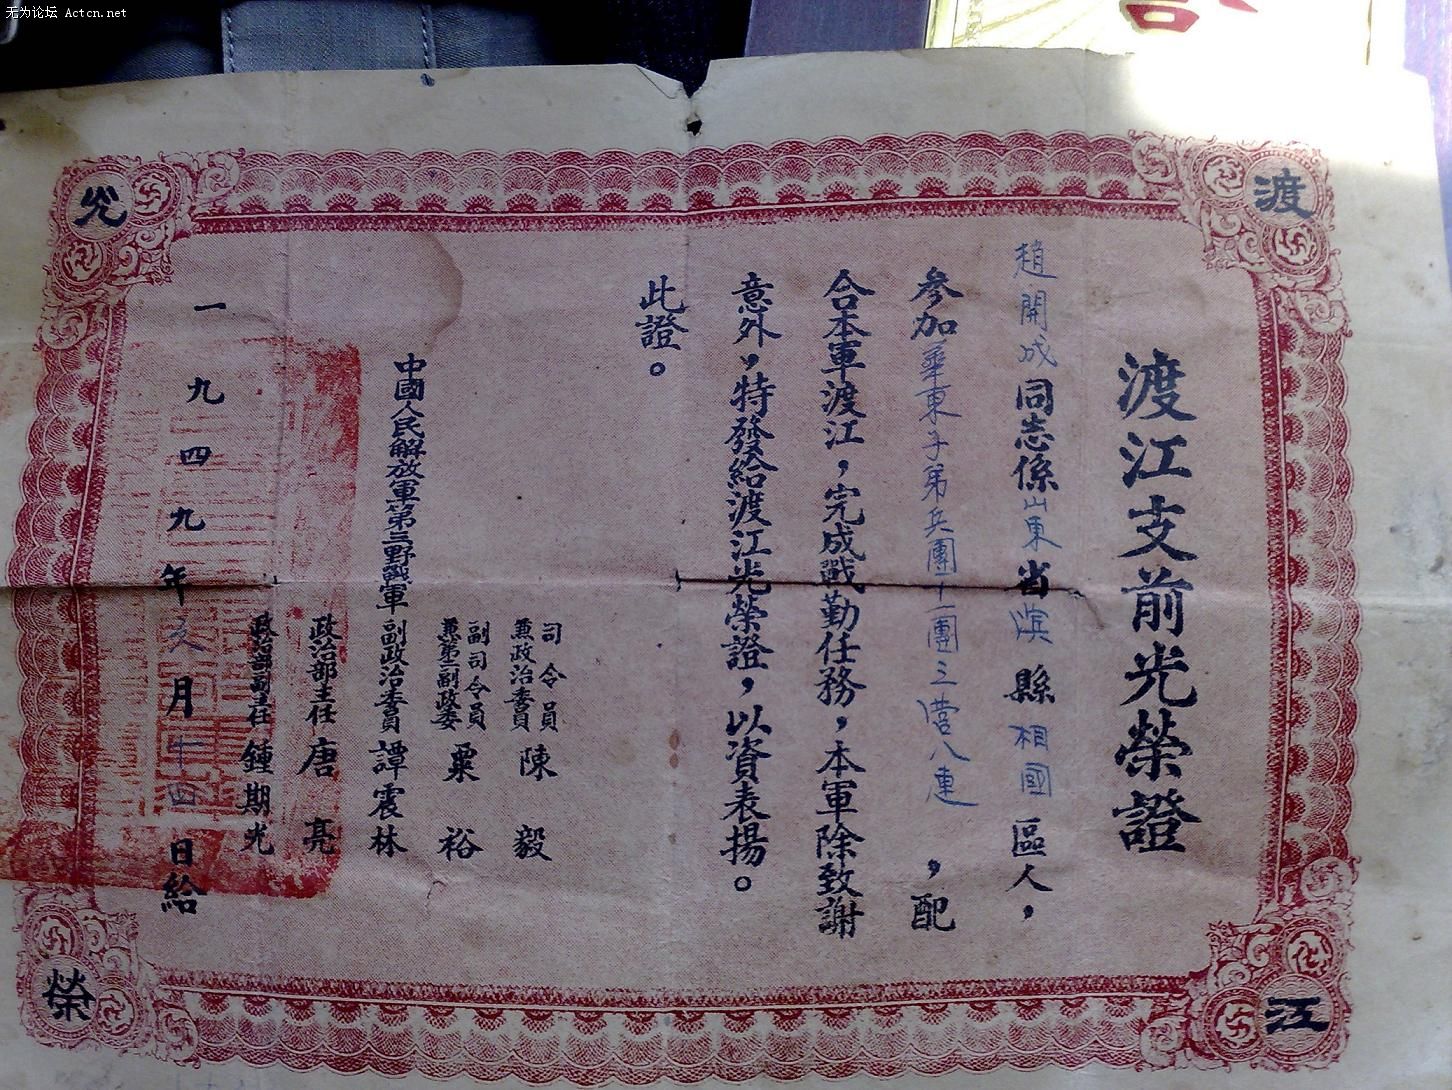 无为论坛 Actcn.net
渡
江
光
榮
渡江支前光榮證
趙開成同志係山東省濱縣相國區人，
参加華東子弟兵團十一團三營八連，配
合本軍渡江，完成戰勤任務，本軍除致謝
意外，特發給渡江光榮證，以資表揚。
此證。
中國人民解放軍第三野戰軍
司令員
兼政治委員 陳毅
副司令員
兼第二副政委 粟裕
副政治委員 譚震林
政治部主任 唐亮
政治部副主任 鍾期光
一九四九年 月 四日給